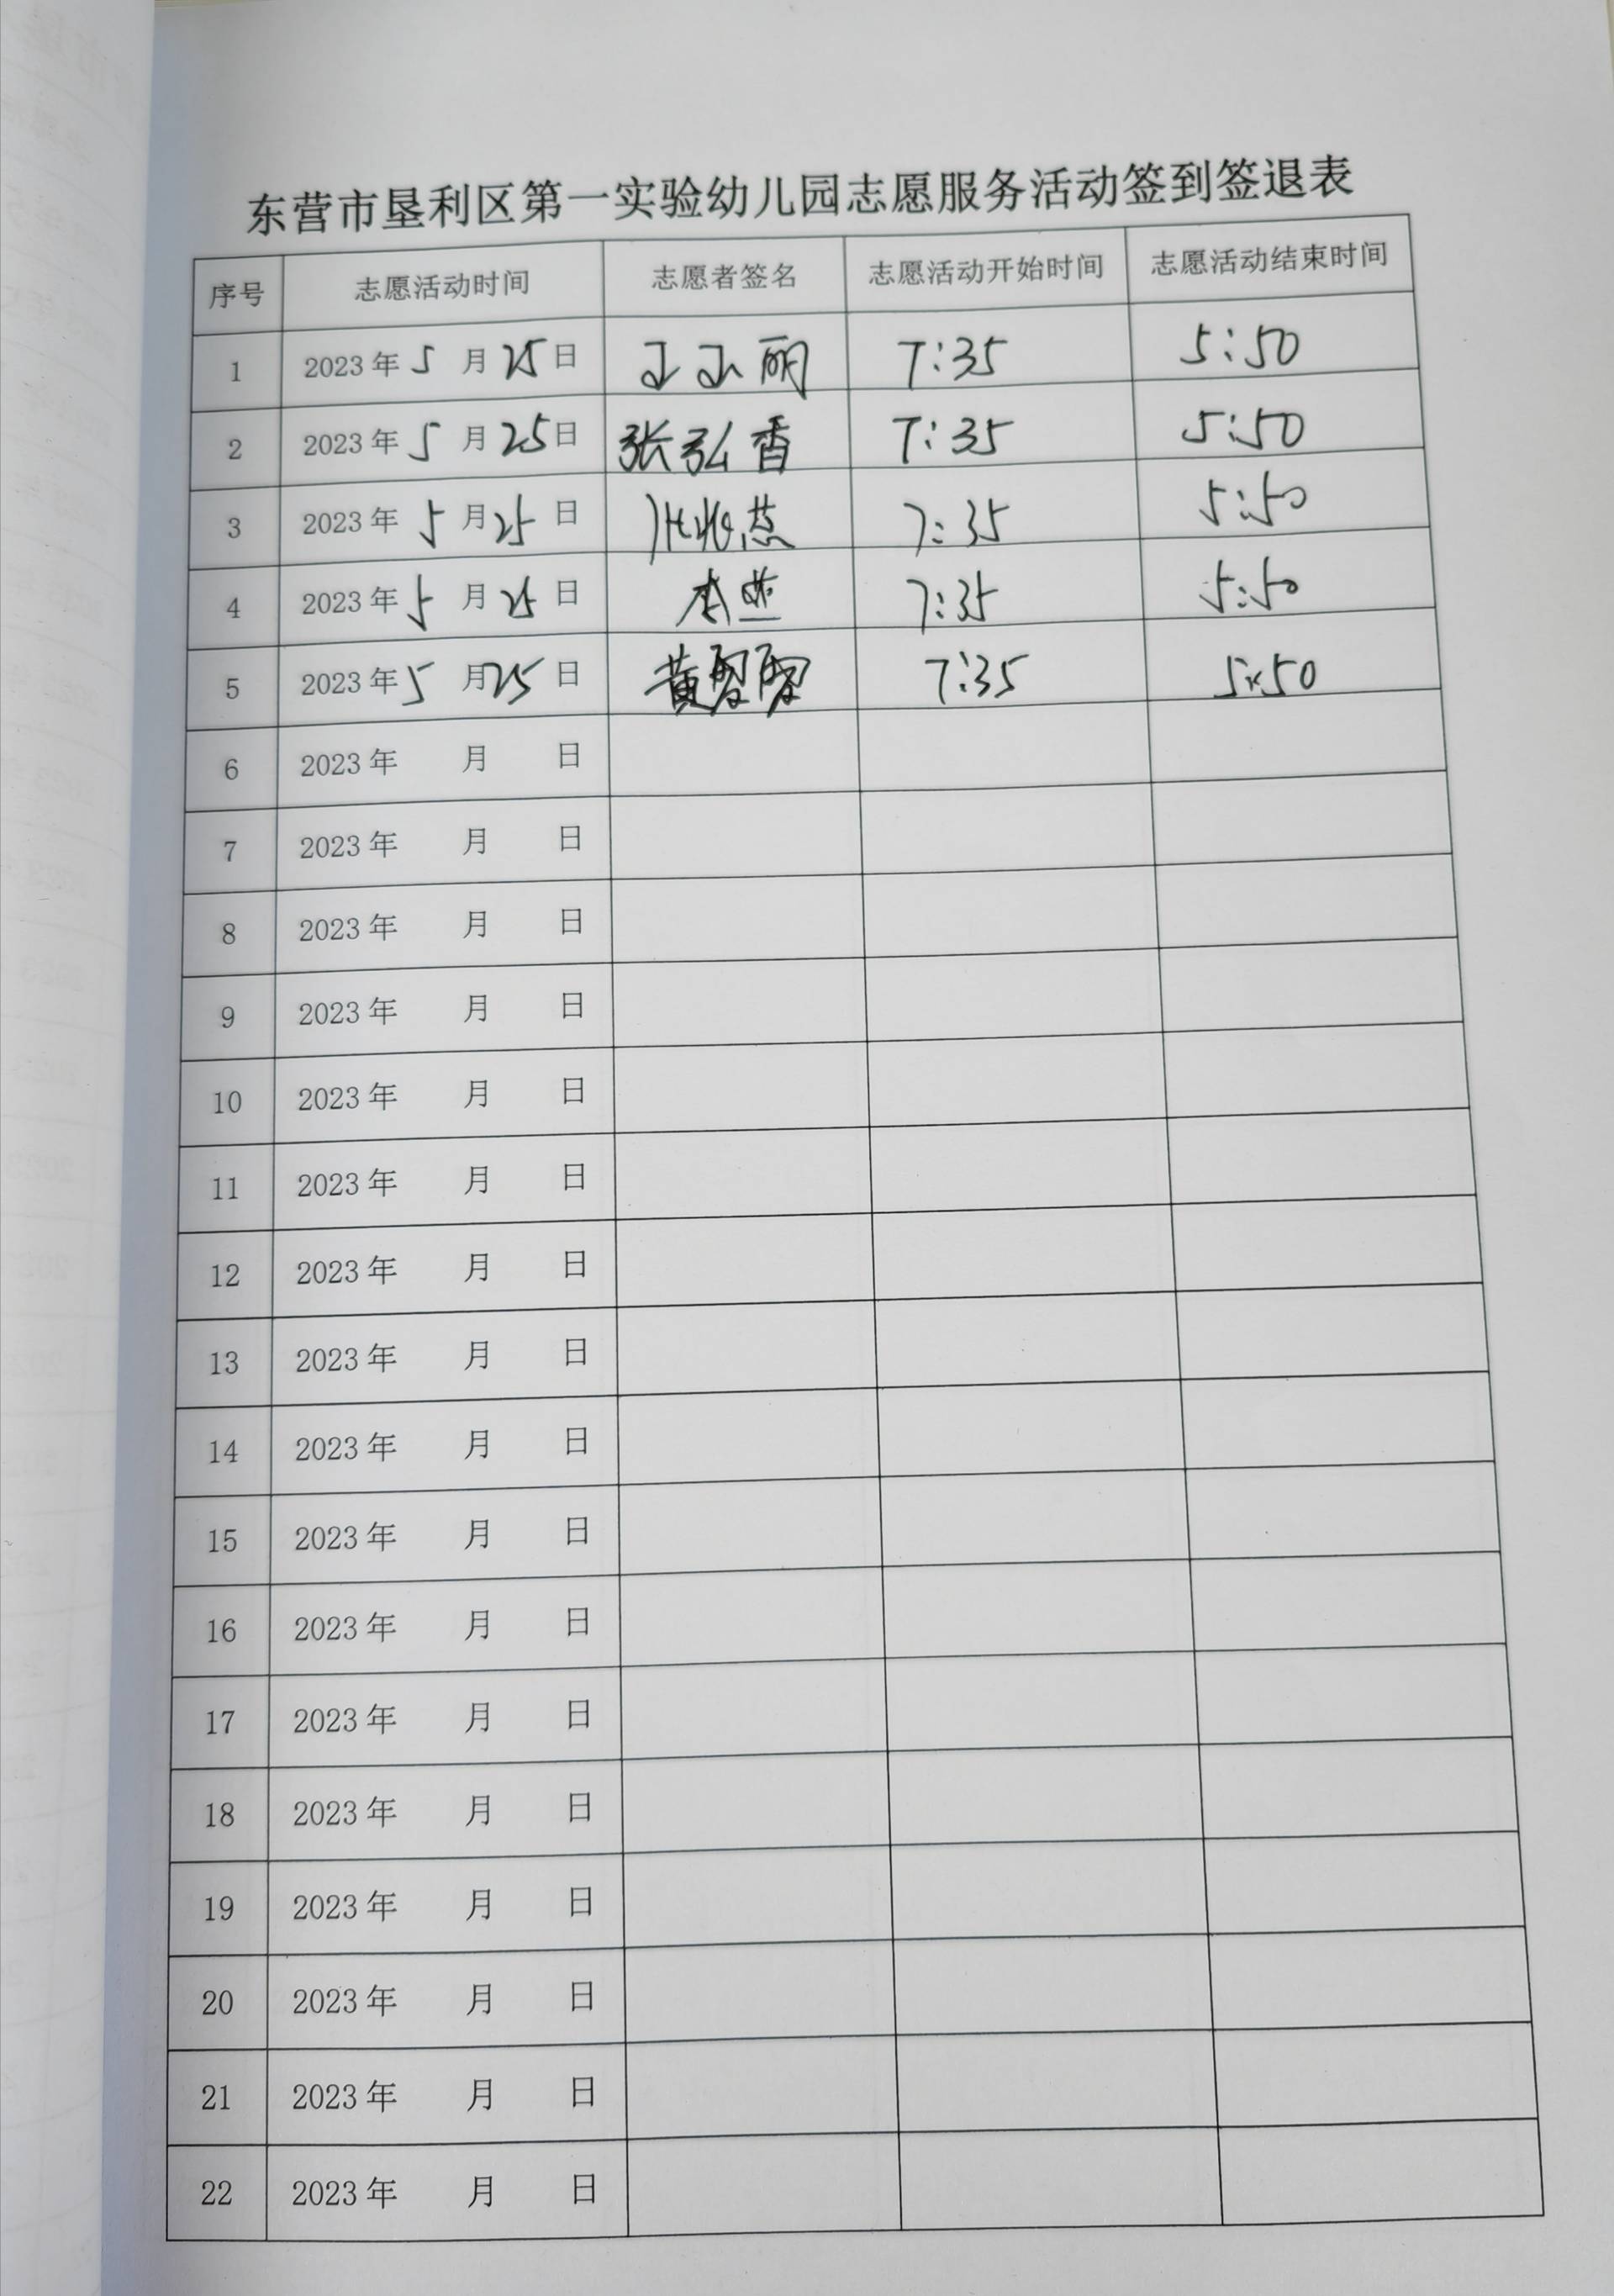 东营市垦利区第一实验幼儿园志愿服务活动签到签退表
序号 志愿活动时间 志愿者签名 志愿活动开始时间 志愿活动结束时间
1 2023年 5 月 25 日 王玉丽 7:35 5:50
2 2023年 5 月 25 日 张弘香 7:35 5:50
3 2023年 5 月 25 日 7:35 5:50
4 2023年 5 月 25 日 7:35 5:50
5 2023年 5 月 25 日 黄 7:35 5:50
6 2023年 月 日
7 2023年 月 日
8 2023年 月 日
9 2023年 月 日
10 2023年 月 日
11 2023年 月 日
12 2023年 月 日
13 2023年 月 日
14 2023年 月 日
15 2023年 月 日
16 2023年 月 日
17 2023年 月 日
18 2023年 月 日
19 2023年 月 日
20 2023年 月 日
21 2023年 月 日
22 2023年 月 日